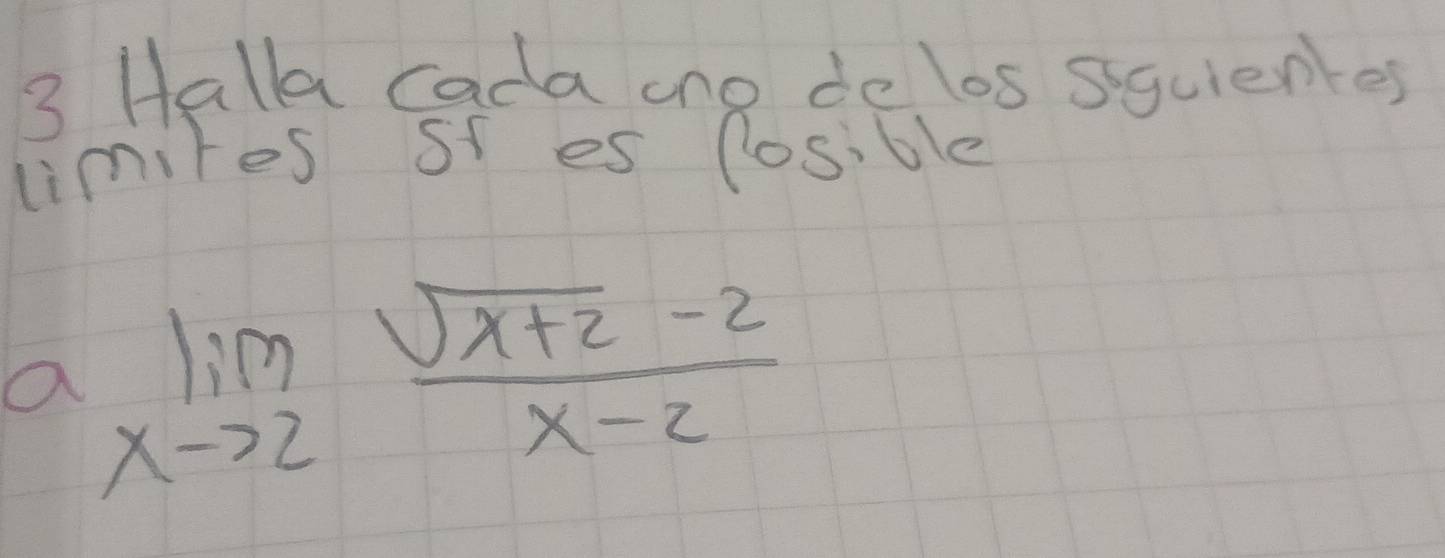 3 Halla cada uno de los siguientes
limites si es Posible
a lim √x+2 - 2
x->2 x-2